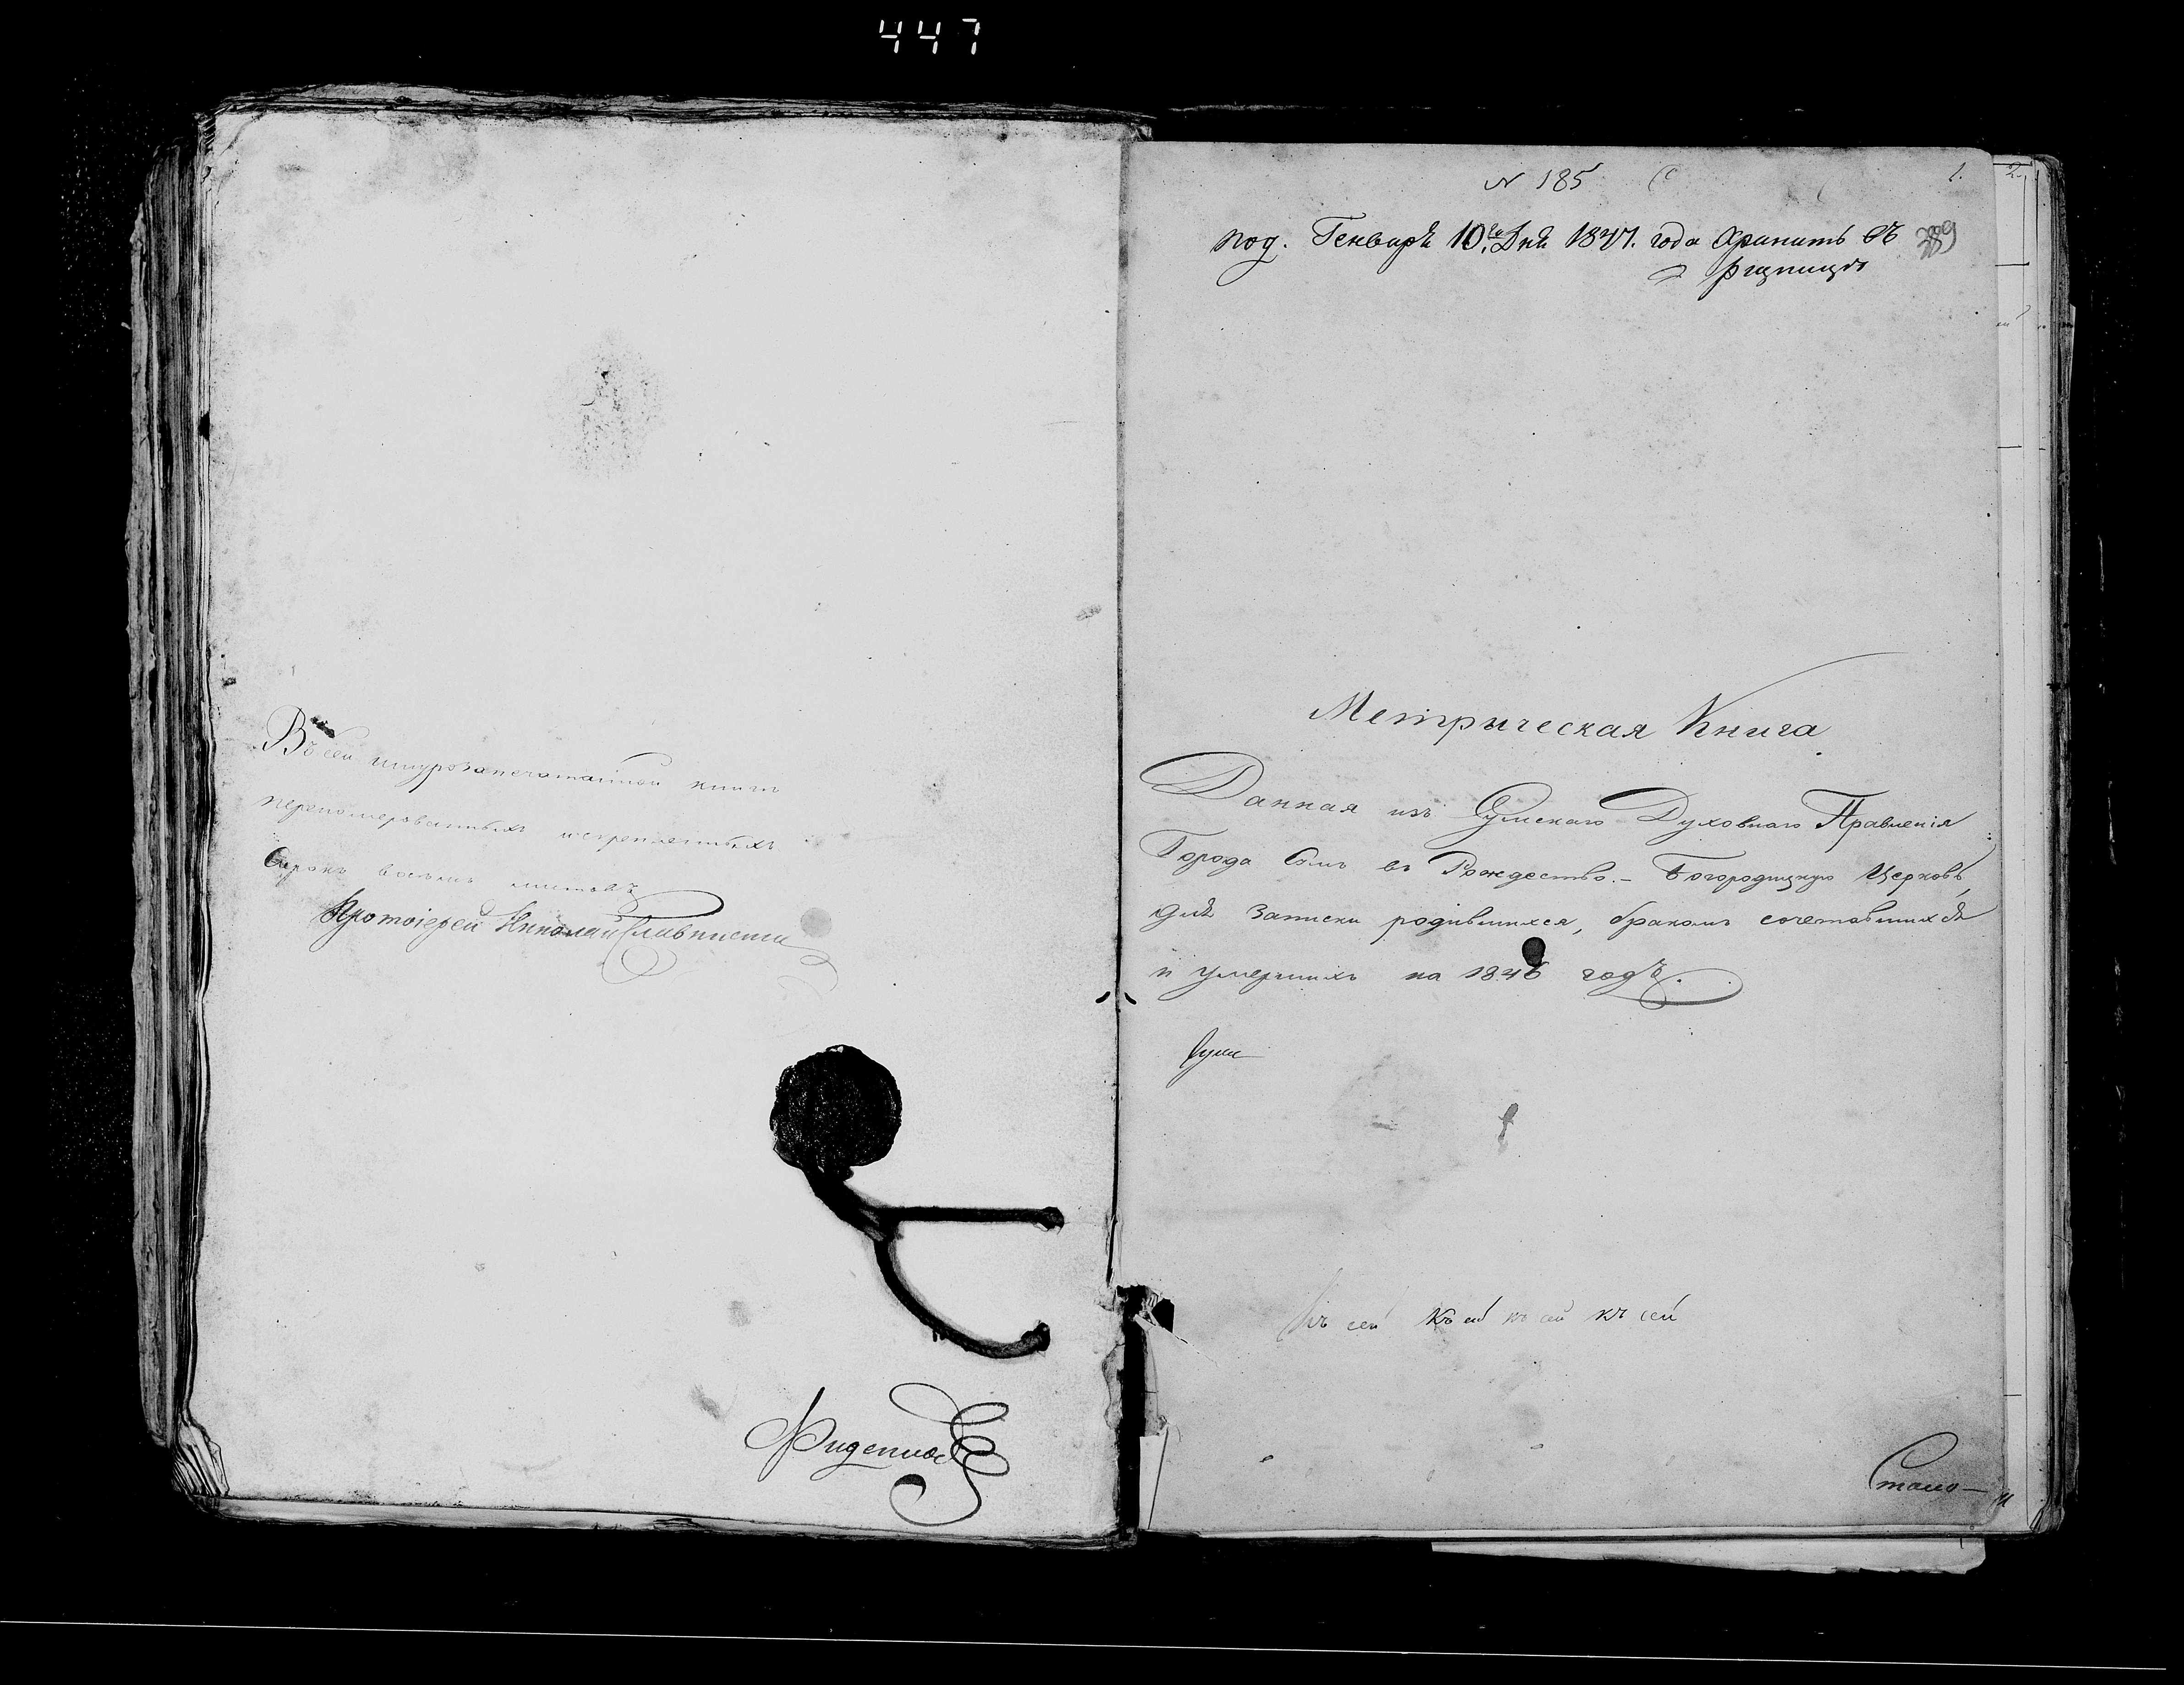 447
Въ сей шнурозапечатанной книгѣ
переномерованныхъ и скрепленныхъ
Сорокъ восемь листовъ
Протоіерей Николай
N 185
1.
2.
под. Генваря 10.го Дня 1847. года Хранить въ
289
Метрическая Книга
Данная изъ Сумскаго Духовнаго Правленія
Города Сумъ въ Рождество.- Богородицкую Церковь,
для записки родившихся, бракомъ сочетавшихся
и умершихъ на 1846 годъ.
къ сей къ сей къ сей къ сей